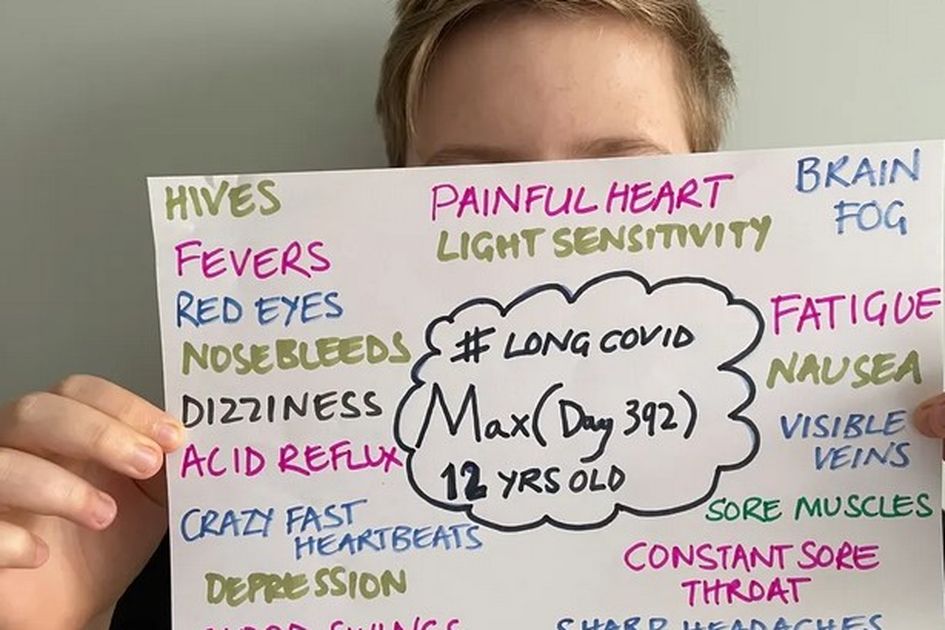 HIVES
PAINFUL HEART
BRAIN
FOG
LIGHT SENSITIVITY
FEVERS
RED EYES
NOSEBLEEDS
DIZZINESS
ACID REFLUX
CRAZY FAST
HEARTBEATS
DEPRESSION
# LONG COVID
Max (Day 392)
12 YRS OLD
FATIGUE
NAUSEA
VISIBLE
VEINS
SORE MUSCLES
CONSTANT SORE
THROAT
SHARP HEADACHES